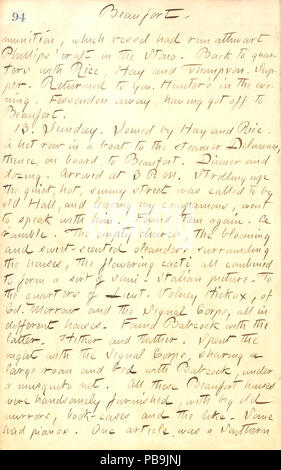 94
Beaufort.
munition, which vessel had run athwart
Phillips' craft in the Stono. Back to quar-
ters with Rice, Hay and Thompson. Sup-
per. Returned to Gen. Hunter's in the eve-
ning. Fessenden away, having got off to
Beaufort.
13. Sunday. Joined by Hay and Rice.
A hot row in a boat to the steamer Delaware,
thence, on board, to Beaufort. Dinner and
dozing. Arrived at 3 P.M. Strolling up
the quiet, hot, sunny street was called to by
old Hall, and leaving my companions, went
to speak with him. Found them again. A
ramble. The empty church, the blooming
and sweet-scented oleanders surrounding
the houses, the flowering cacti all combined
to form a sort of semi-Italian picture. To
the quarters of Lieut. Volney Hickox, of
Ed. Morrow and the Signal Corps, all in
different houses. Found Babcock with the
latter. Hither and thither. Spent the
night with the Signal Corps, sharing a
large room and bed with Babcock, under
a musquito net. All these Beaufort houses
were handsomely furnished, with big old
mirrors, book-cases and the like. Some
had pianos. One article was a Southern
alamy
Image ID: PB9JNJ
www.alamy.com